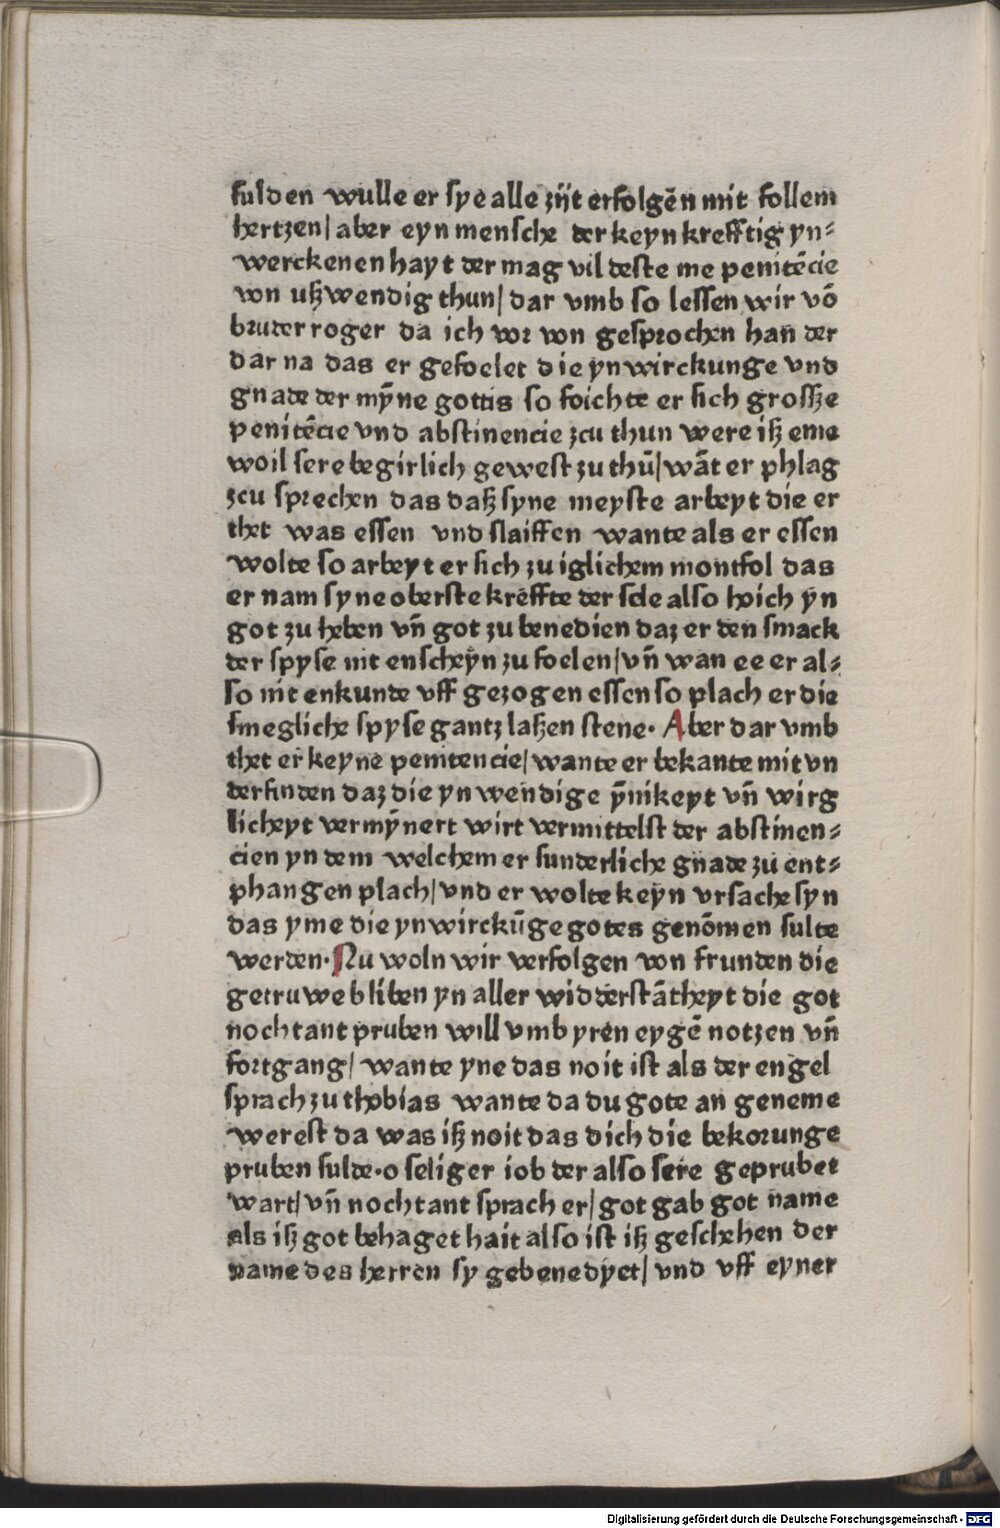 sulden wulle er sye alle zijt erfolgēn mit follem
hertzen/ aber eyn mensche der keyn krefftig yn⸗
werckenen hayt der mag vil deste me penitēcie
von uſzwendig thun/ dar vmb so lessen wir vō
bruder roger da ich vor von gesprochen han der
dar na das er gefoelet die ynwirckunge vnd
gnade der mȳne gottis so foichte er sich groſsze
penitēcie vnd abstinencie zcu thun were iſz eme
woil sere begirlich gewest zu thū/ wāt er phlag
zcu sprechen das daſz syne meyste arbeyt die er
thet was essen vnd slaiffen wante als er essen
wolte so arbeyt er sich zu iglichem montfol das
er nam syne oberste kreffte der sele also hoich yn
got zu heben vn̄ got zu benedien daz er den smack
der spyse nit enscheyn zu foelen/ vn̄ wan ee er al⸗
so nit enkunde vff gezogen essen so plach er die
smegliche spyse gantz laſzen stene. Aber dar vmb
thet er keyne penitencie/ wante er bekante mit vn
derfinden daz die ynwendige ȳnikeyt vn̄ wirg
licheyt vermȳnert wirt vermittelst der abstinen⸗
cien yn dem welchem er sunderliche gnade zu ent⸗
phangen plach/ vnd er wolte keyn vrsache syn
das yme die ynwirckūge gotes genōmen sulte
werden. Nu woln wir verfolgen von frunden die
getruwe bliben yn aller widderstātheyt die got
nochtant pruben will vmb yren eygē notzen vn̄
fortgang/ wante yne das noit ist als der engel
sprach zu thobias wante da du gote an geneme
werest da was iſz noit das dich die bekorunge
pruben sulde. o seliger iob der also sere geprubet
wart/ vn̄ nochtant sprach er/ got gab got name
als iſz got behaget hait also ist iſz geschehen der
name des herren sy gebenedyet/ vnd vff eyner
Digitalisierung gefördert durch die Deutsche Forschungsgemeinschaft - DFG